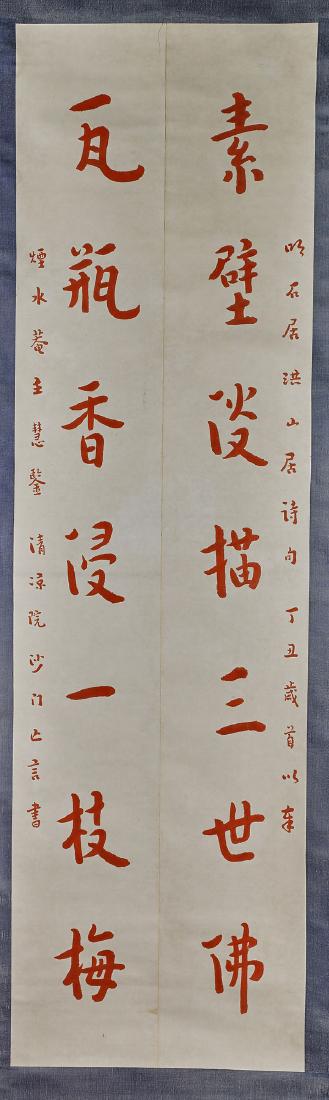 明石居洪山居詩句 丁丑歲首以奉
素壁淡描三世佛
瓦瓶香浸一枝梅
煙水菴主慧鑒 清涼院沙門亡言書